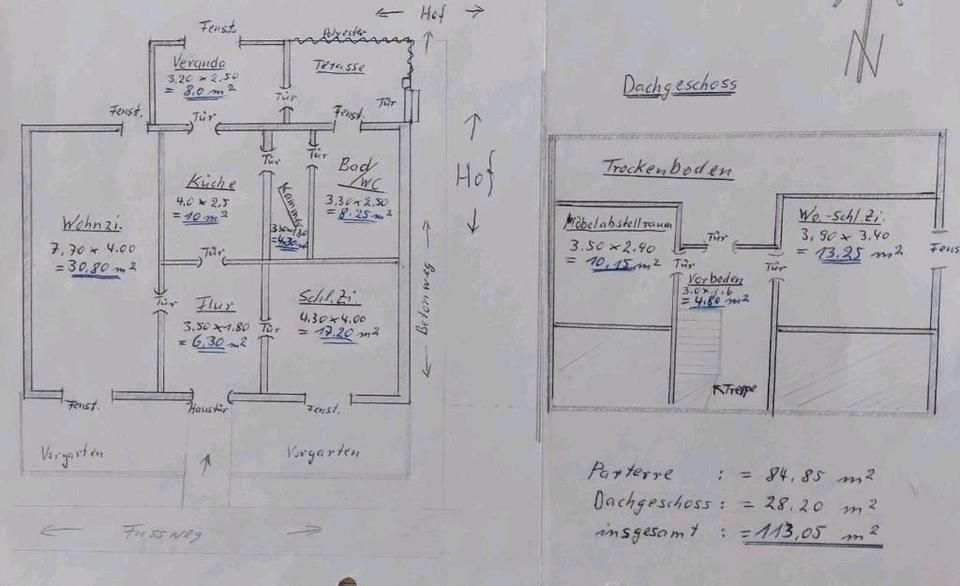 ← Hof →
Fenst.
Polyester
Veranda
3,20 x 2,50
= 8,0 m²
Terasse
Tür
Tür
Fenst.
Tür
Fenst.
Hof
Wohnzi.
7,70 x 4.00
= 30,80 m²
Küche
4,0 x 2,5
= 10 m²
Tür
Kammer
Tür
Bad/WC
3,30 x 2,50
= 8,25 m²
Tür
Tür
Flur
3,50 x 1.80
= 6,30 m²
Tür
Schl.Zi.
4,30 x 4.00
= 17.20 m²
← Betonweg →
Fenst.
Haustür
Fenst.
Vorgarten
Vorgarten
← Fussweg →
N
Dachgeschoss
Trockenboden
Möbelabstellraum
3.50 x 2.90
= 10,15 m²
Tür
Tür
Vorboden
3.0 x 1.6
= 4.80 m²
Tür
Wo.-Schl.Zi.
3,90 x 3,40
= 13.25 m²
Fens
Treppe
Parterre : = 84,85 m²
Dachgeschoss : = 28.20 m²
insgesamt : = 113,05 m²